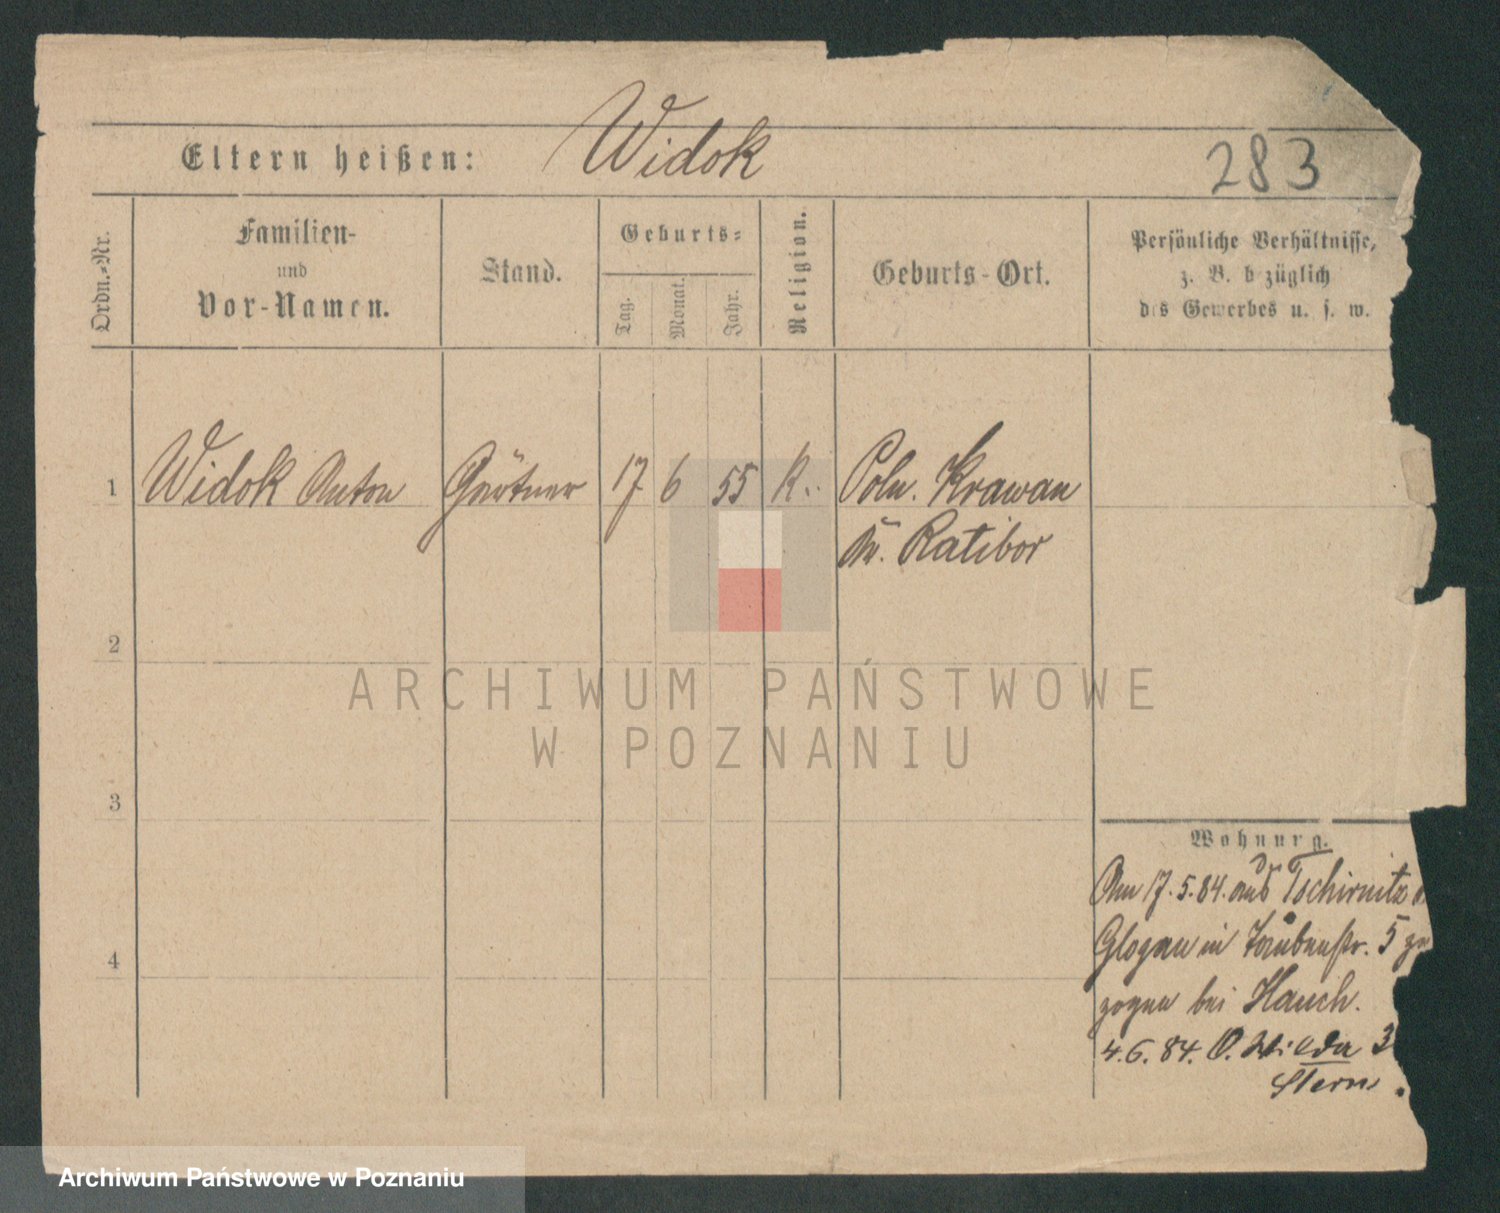 Widok
Eltern heißen:
283
Ordn.-Nr.
Familien-
und
Vor-Namen.
Stand.
Geburts-
Tag.
Monat.
Jahr.
Religion.
Geburts-Ort.
Persönliche Verhältnisse,
z. B. bezüglich
des Gewerbes u. s. w.
1 Widok Anton Gärtner 17 6 55 K. Poln. Krawan
Kr. Ratibor
2
ARCHIWUM PAŃSTWOWE
W POZNANIU
3
Wohnung.
Am 17.5.84. aus Tschirnitz
4
Glogau in Taubenstr. 5 ge
zogen bei Hauch.
4.6.84. O. Wilda 3
Stern
Archiwum Państwowe w Poznaniu